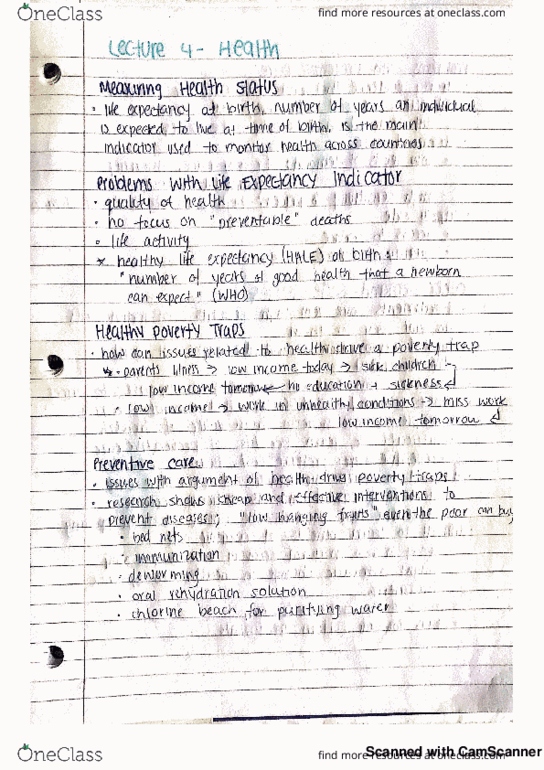 OneClass
find more resources at oneclass.com
Lecture 4 - Health
Measuring Health Status
• life expectancy at birth, number of years an individual
is expected to live at time of birth, is the main
indicator used to monitor health across countries
Problems with Life Expectancy Indicator
• quality of health
• no focus on "preventable" deaths
• life activity
* healthy life expectancy (HALE) at birth:
"number of years of good health that a newborn
can expect" (WHO)
Healthy Poverty Traps
• how can issues related to health drive a poverty trap
↳ • parents illness → low income today → sick children
low income tomorrow ← no education + sickness
• low income → work in unhealthy conditions → miss work
low income tomorrow
Preventive care
• issues with argument of health drive poverty traps:
• research shows cheap and effective interventions to
prevent diseases; "low hanging fruits" even the poor can buy
• bed nets
• immunization
• deworming
• oral rehydration solution
• chlorine beach for purifying water
OneClass
find more resources at oneclass.com
Scanned with CamScanner